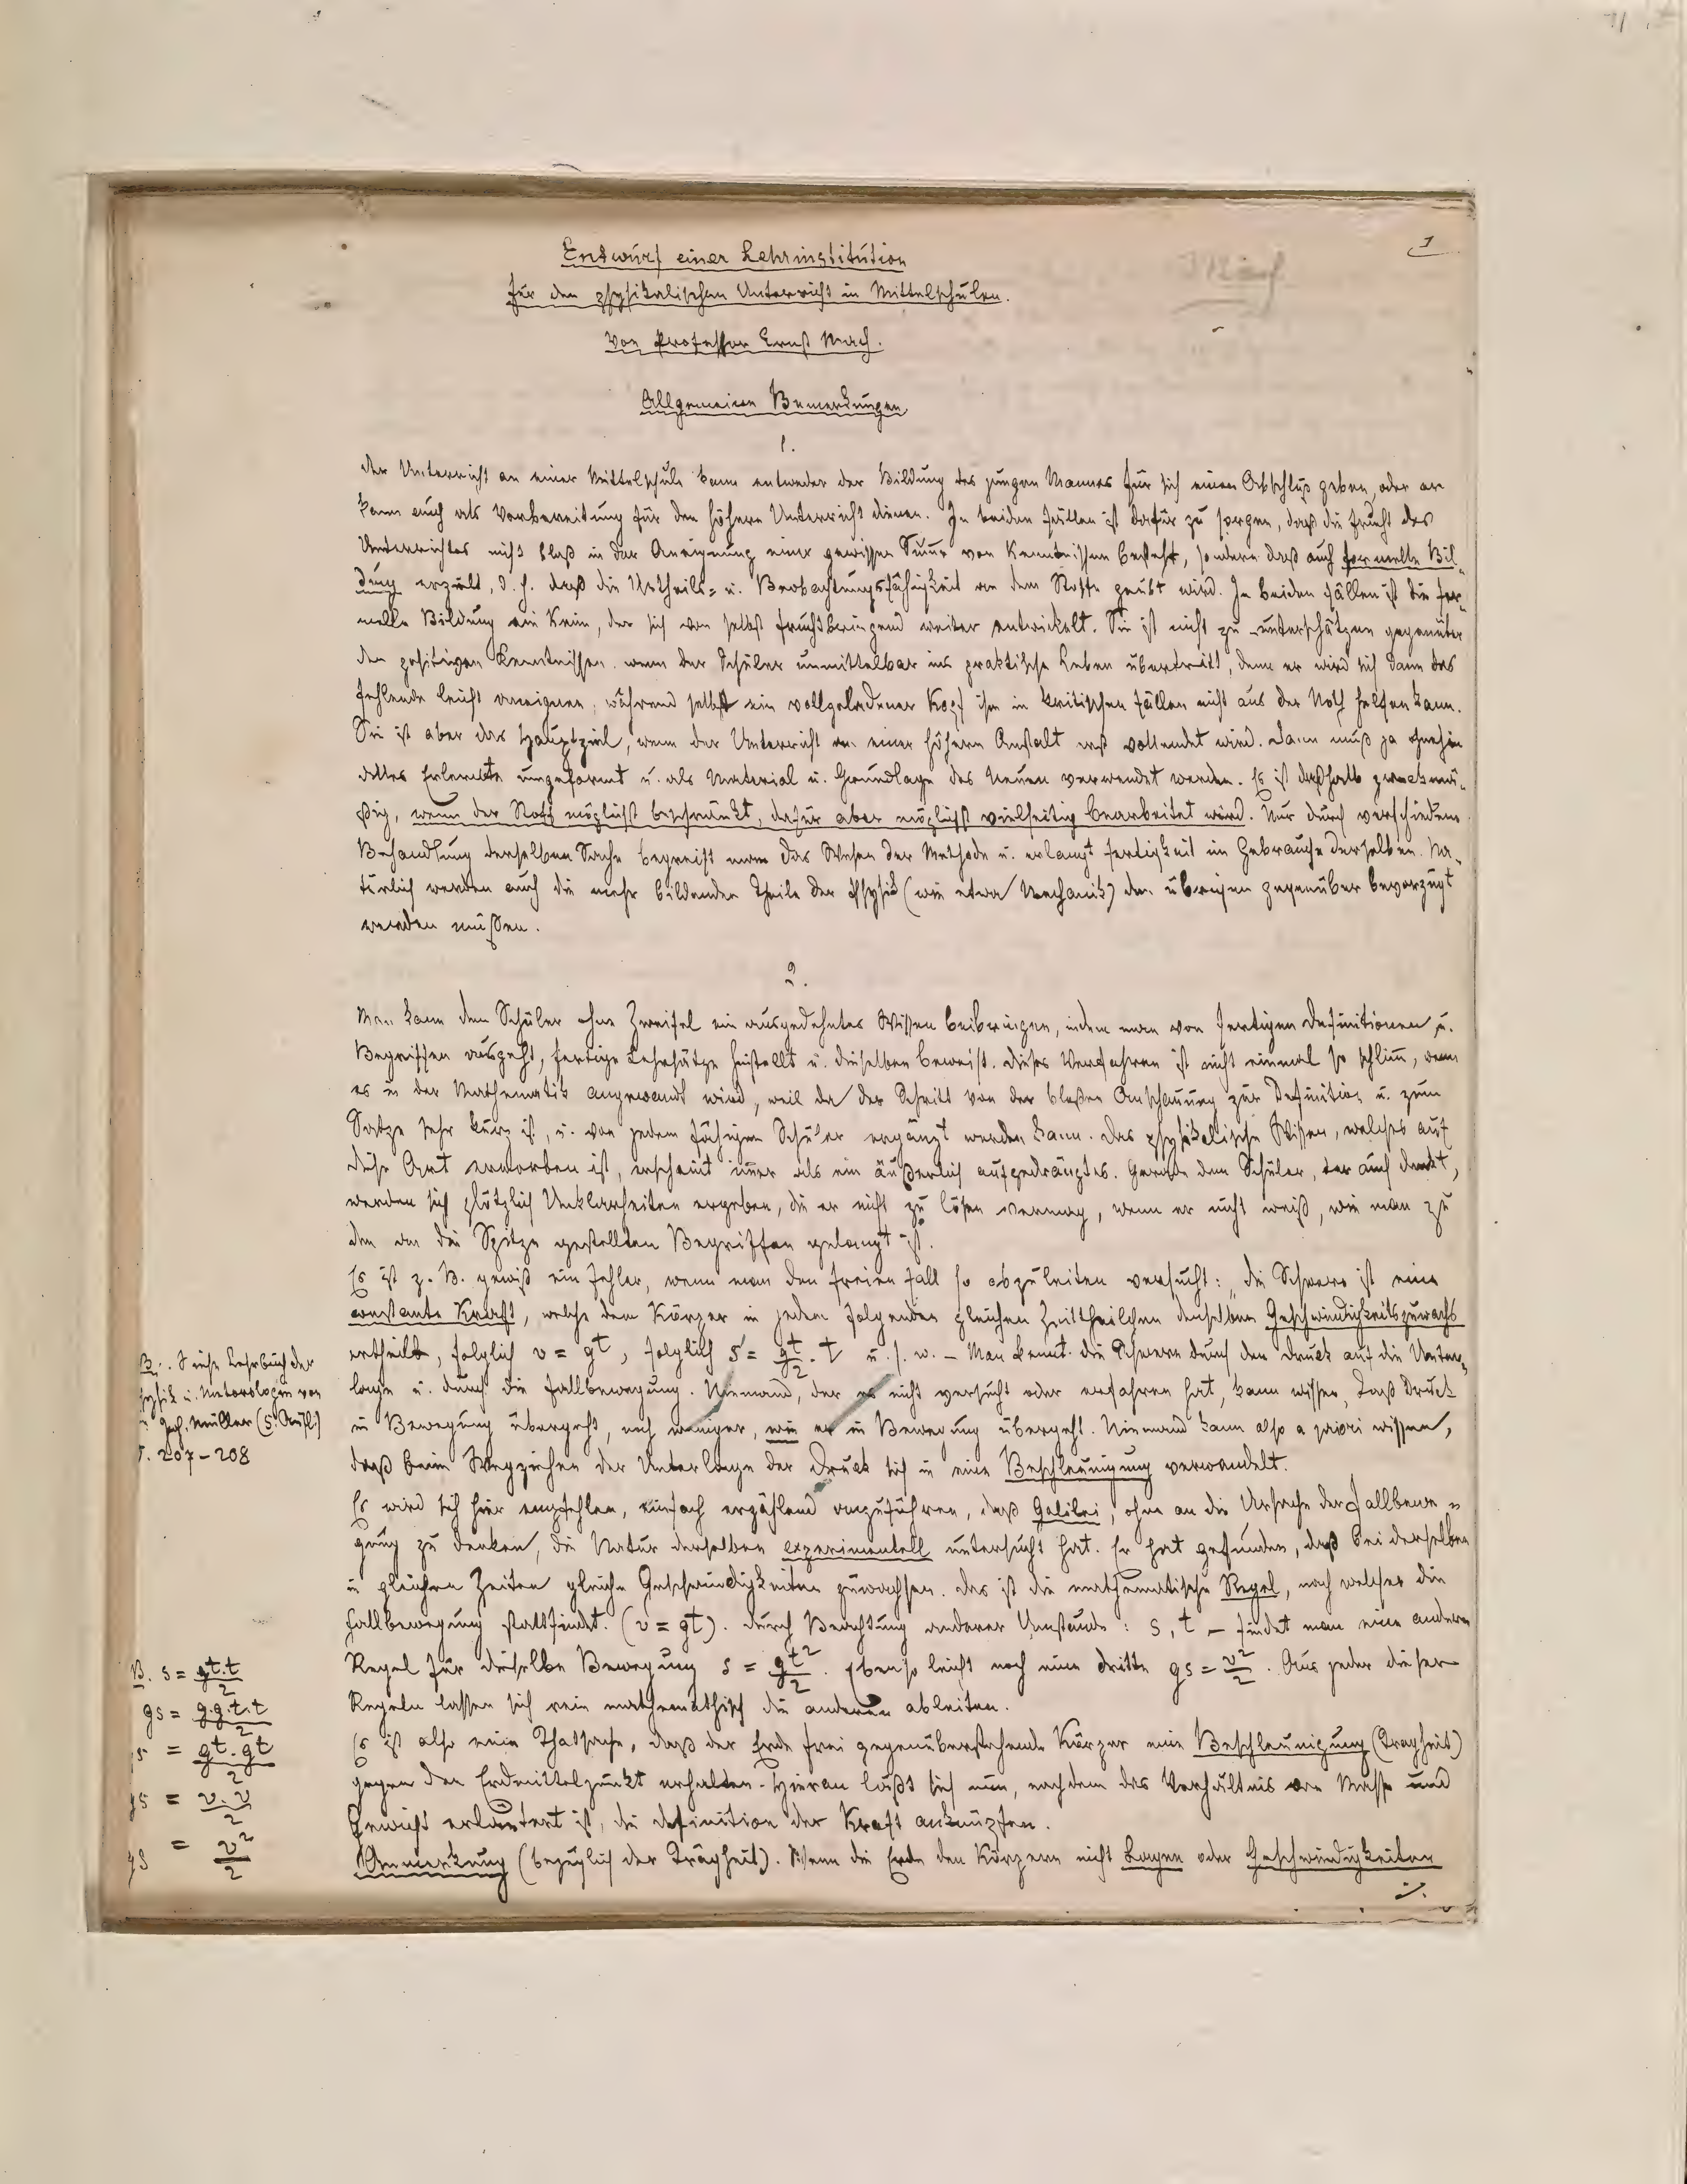 1
Entwurf einer Lehrinstitution
für den physikalischen Unterricht in Mittelschulen.
Von Professor Ernst Mach.
Allgemeine Bemerkungen
1.
Der Unterricht an einer Mittelschule kann entweder der Bildung des jungen Mannes für sich einen Abschluß geben, oder er
kann auch als Vorbereitung für den höhern Unterricht dienen. In beiden Fällen ist dafür zu sorgen, daß die Frucht des
Unterrichtes nicht bloß in der Aneignung einer gewissen Sum̄e von Kenntnissen besteht, sondern daß auch formelle Bil-
dung erzielt, d. h. daß die Urtheils- u. Beobachtungsfähigkeit an dem Stoffe geübt wird. In beiden Fällen ist die for-
melle Bildung ein Keim, der sich von selbst fruchtbringend weiter entwickelt. Sie ist nicht zu unterschätzen gegenüber
den positiven Kenntnissen, wenn der Schüler unmittelbar ins praktische Leben übertritt, denn er wird sich dann das
Fehlende leicht aneignen, während selbst ein vollgeladener Kopf ihm in kritischen Fällen nicht aus der Noth helfen kann.
Sie ist aber das Hauptziel, wenn der Unterricht an einer höhern Anstalt erst vollendet wird. Dann muß ja ohnehin
alles Erlernte umgeformt u. als Material u. Grundlage des Neuen verwendet werden. Es ist deßhalb zweckmä-
ßig, wenn der Stoff möglichst beschränkt, dafür aber möglichst vielseitig bearbeitet wird. Nur durch verschiedene
Behandlung derselben Sache begreift man das Wesen der Methode u. erlangt Fertigkeit im Gebrauche derselben. Na-
türlich werden auch die mehr bildenden Theile der Physik (wie etwa Mechanik) den übrigen gegenüber bevorzugt
werden müssen.
2.
Man kann dem Schüler ohne Zweifel ein ausgedehntes Wissen beibringen, indem man von fertigen Definitionen u.
Begriffen ausgeht, fertige Lehrsätze hinstellt u. dieselben beweist. Dieses Verfahren ist nicht einmal so schlim̄, wenn
es in der Mathematik angewandt wird, weil da der Schritt von der bloßen Anschauung zur Definition u. zum
Satze sehr kurz ist, u. von jedem fähigen Schüler ergänzt werden kann. Das physikalische Wissen, welches auf
diese Art erworben ist, erscheint im̄er als ein äußerlich aufgedrängtes. Gerade dem Schüler, der auch denkt,
werden sich plötzlich Unklarheiten ergeben, die er nicht zu lösen vermag, wenn er nicht weiß, wie man zu
den an die Spitze gestellten Begriffen gelangt ist.
Es ist z. B. gewiß ein Fehler, wenn man den freien Fall so abzuleiten versucht: die Schwere ist eine
constante Kraft, welche dem Körper in jedem folgenden gleichen Zeittheilchen denselben Geschwindigkeitszuwachs
ertheilt, folglich v = gt, folglich s = gt/2 . t u. s. w. – Man kennt die Schwere durch den Druck auf die Unter-
lage u. durch die Fallbewegung. Niemand, der es nicht versucht oder erfahren hat, kann wissen, daß Druck
in Bewegung übergeht, noch weniger, wie er in Bewegung übergeht. Niemand kann also a priori wissen,
daß beim Wegziehen der Unterlage der Druck sich in eine Beschleunigung verwandelt.
Es wird sich hier empfehlen, einfach erzählend anzuführen, daß Galilei, ohne an die Ursache der Fallbewe-
gung zu denken, die Natur derselben experimentell untersucht hat. Er hat gefunden, daß bei derselben
in gleichen Zeiten gleiche Geschwindigkeiten zuwachsen. Das ist die mathematische Regel, nach welcher die
Fallbewegung stattfindet. (v = gt). Durch Beachtung anderer Umstände: s, t – findet man eine andere
Regel für dieselbe Bewegung s = gt²/2. Ebenso leicht noch eine dritte gs = v²/2. Aus jeder dieser
Regeln lassen sich rein mathemathisch die anderen ableiten.
Es ist also eine Thatsache, daß der Erde frei gegenüberstehende Körper eine Beschleunigung (Tragheit)
gegen den Erdmittelpunkt erhalten. Hieran läßt sich nun, nachdem das Verhältnis von Masse und
Gewicht erläutert ist, die Definition der Kraft anknüpfen.
Anmerkung (bezüglich der Trägheit). Wenn die Erde den Körpern nicht Lagen oder Geschwindigkeiten
./.
B. Siehe Lehrbuch der
Physik u. Meteorologie von
Joh. Müller (5. Aufl.)
S. 207–208
B. s = gt.t/2
gs = g.g.t.t/2
gs = gt.gt/2
gs = v.v/2
gs = v²/2